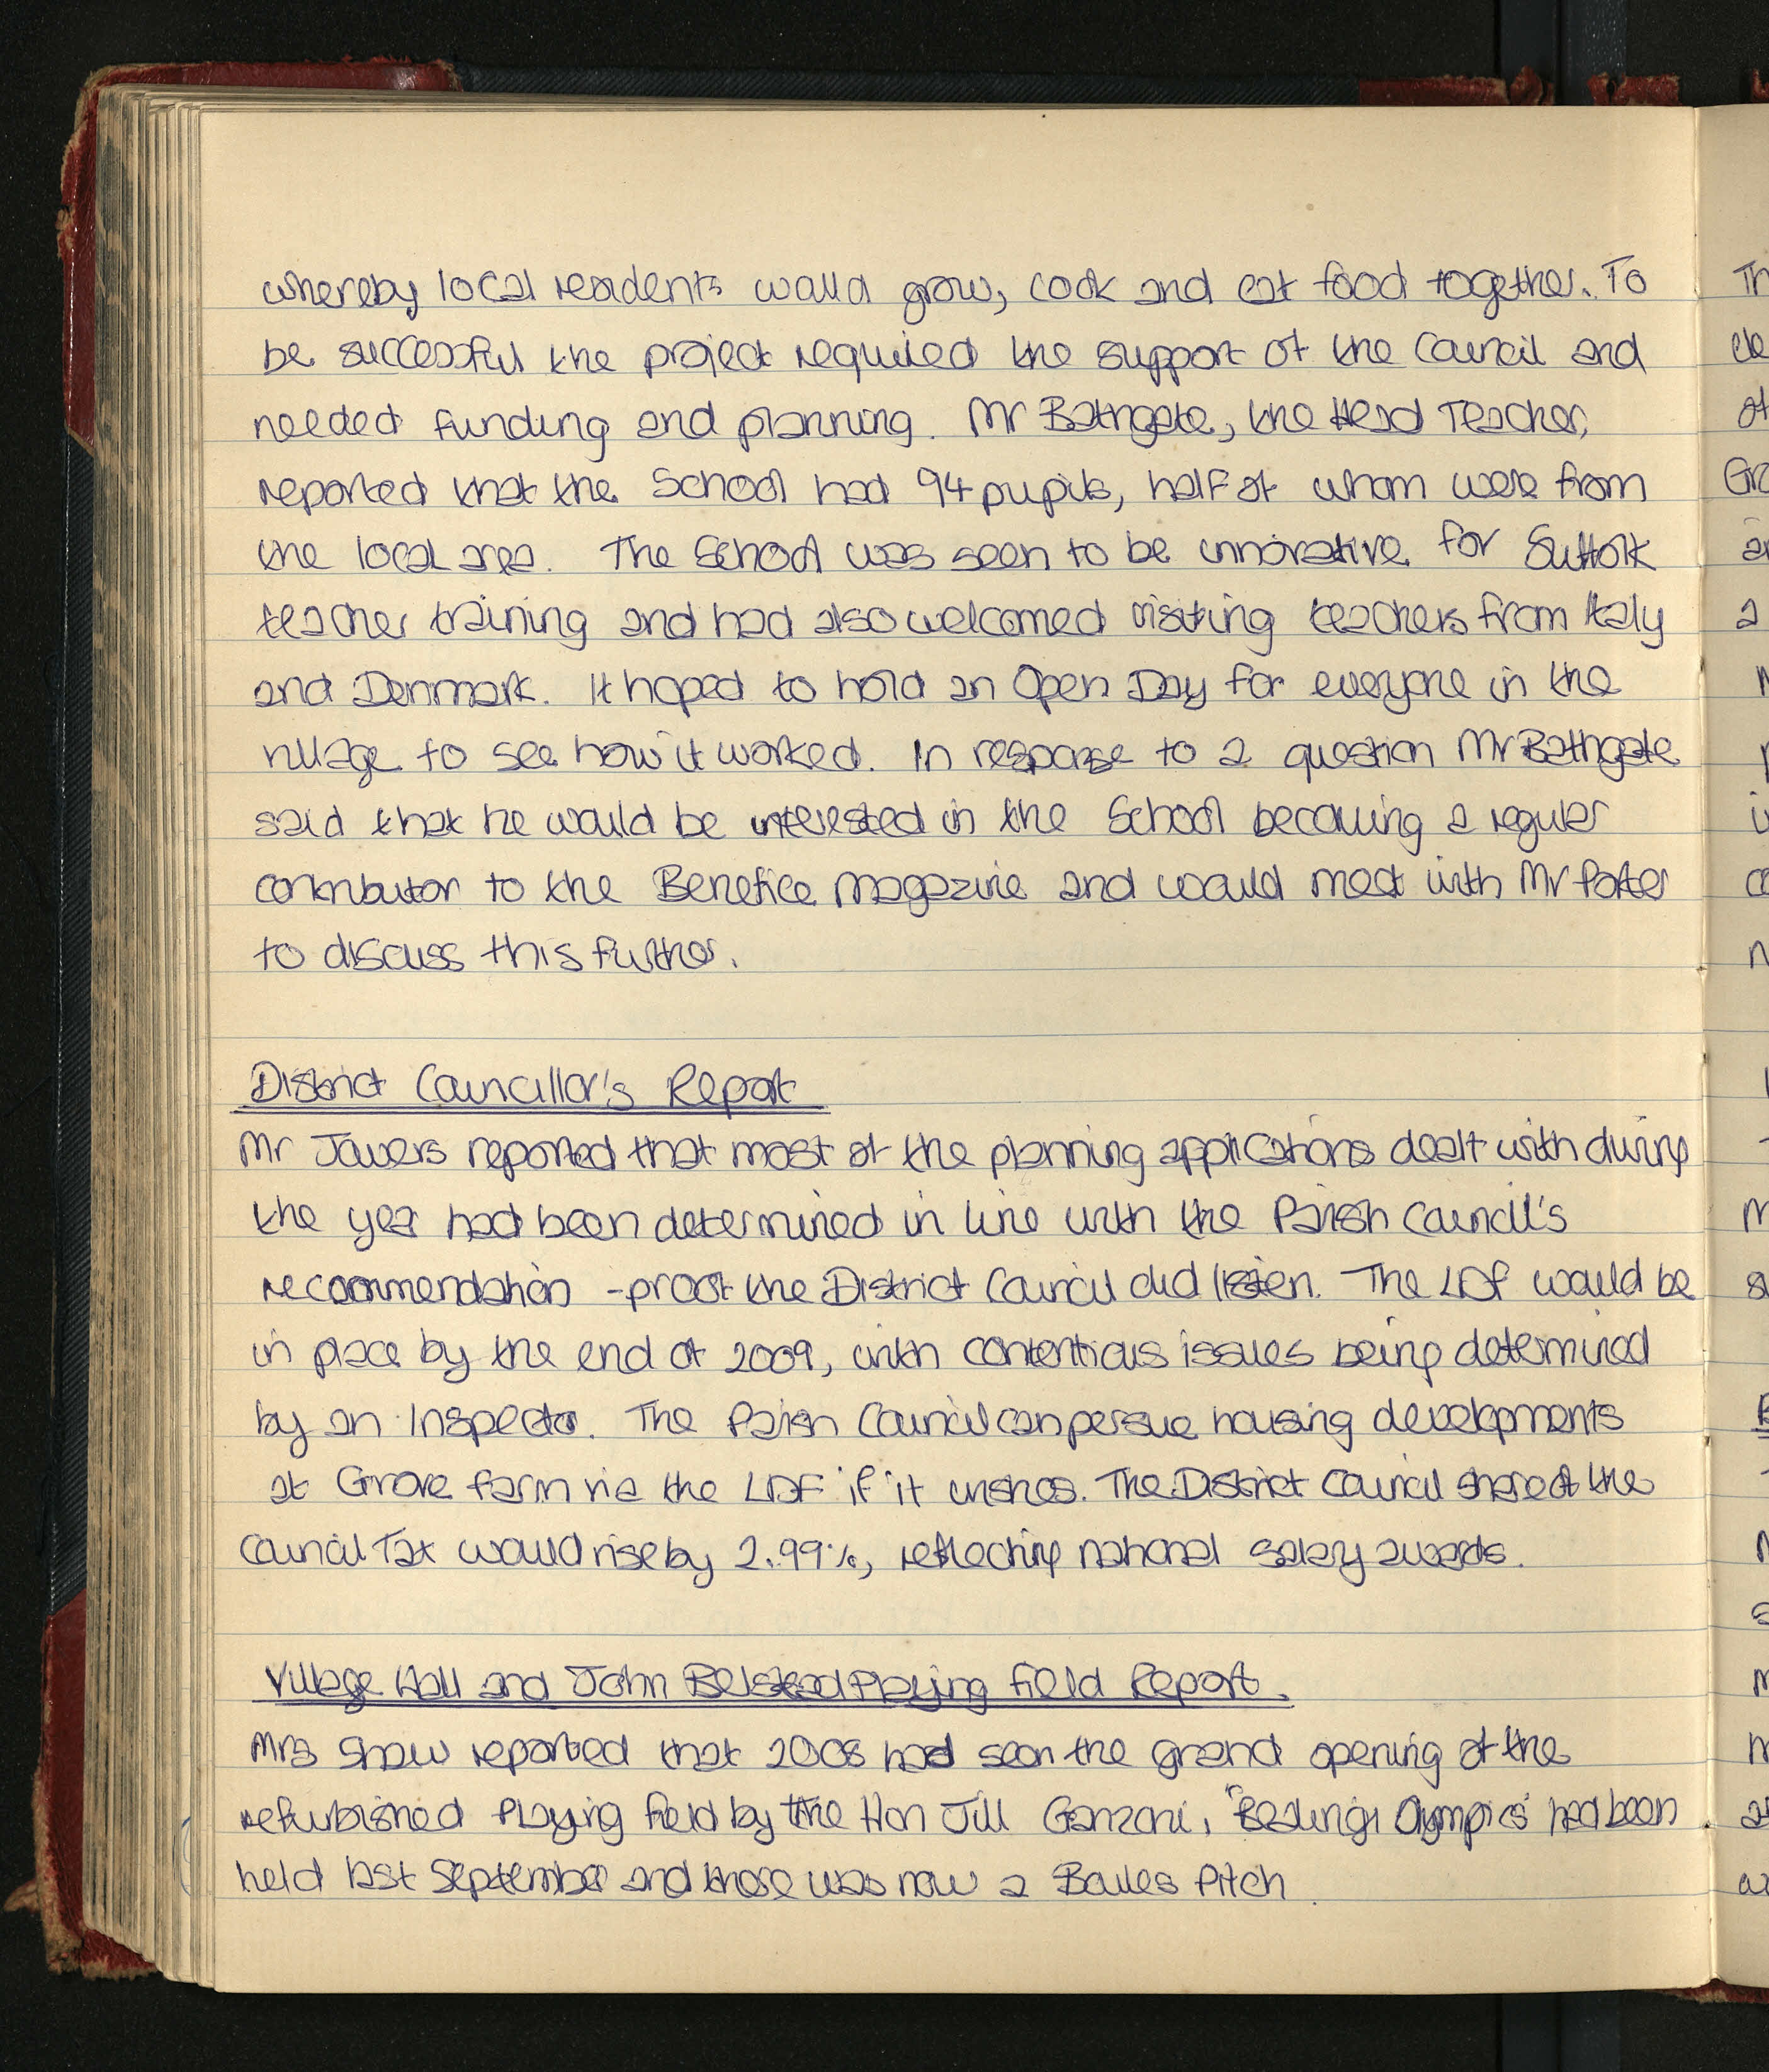 whereby local residents would grow, cook and eat food together. To
be successful the project required the support of the Council and
needed funding and planning. Mr Bathgate, the Head Teacher,
reported that the School had 94 pupils, half of whom were from
the local area. The School was seen to be innovative for Suffolk
teacher training and had also welcomed visiting teachers from Italy
and Denmark. It hoped to hold an Open Day for everyone in the
village to see how it worked. In response to a question Mr Bathgate
said that he would be interested in the School becoming a regular
contributor to the Benefice Magazine and would meet with Mr Porter
to discuss this further.
District Councillor's Report
Mr Javers reported that most of the planning applications dealt with during
the year had been determined in line with the Parish Council's
recommendation - proof the District Council did listen. The LDF would be
in place by the end of 2009, with contentious issues being determined
by an Inspector. The Parish Council can persue housing developments
at Grove Farm via the LDF if it wishes. The District Council share of the
Council Tax would rise by 2.99%, reflecting national salary awards.
Village Hall and John Belstead Playing Field Report.
Mrs Shaw reported that 2008 had seen the grand opening of the
refurbished Playing Field by the Hon Jill Ganzoni, 'Bealings Olympics' had been
held last September and there was now a Boules Pitch.